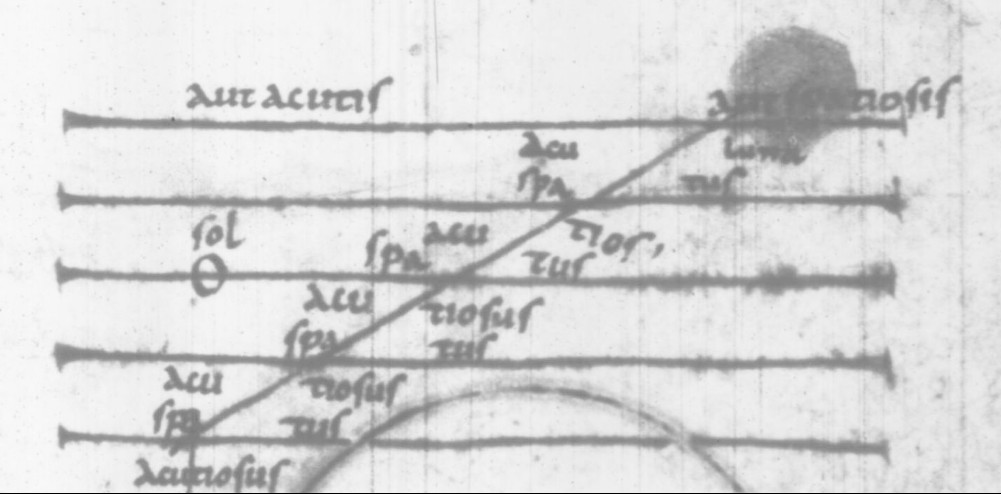 aut acutis aut spatiosis
acu luna
spa tus
sol spa acu tios,
tus
acu tiosus
spa tus
acu tiosus
spa tus
acutiosus